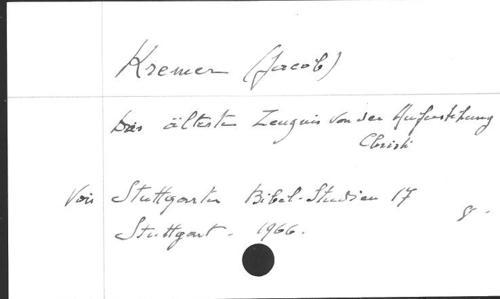 Kremer (Jacob)
Das älteste Zeugnis von der Auferstehung
Christi
Voir Stuttgarter Bibel-Studien 17
8°.
Stuttgart - 1966.